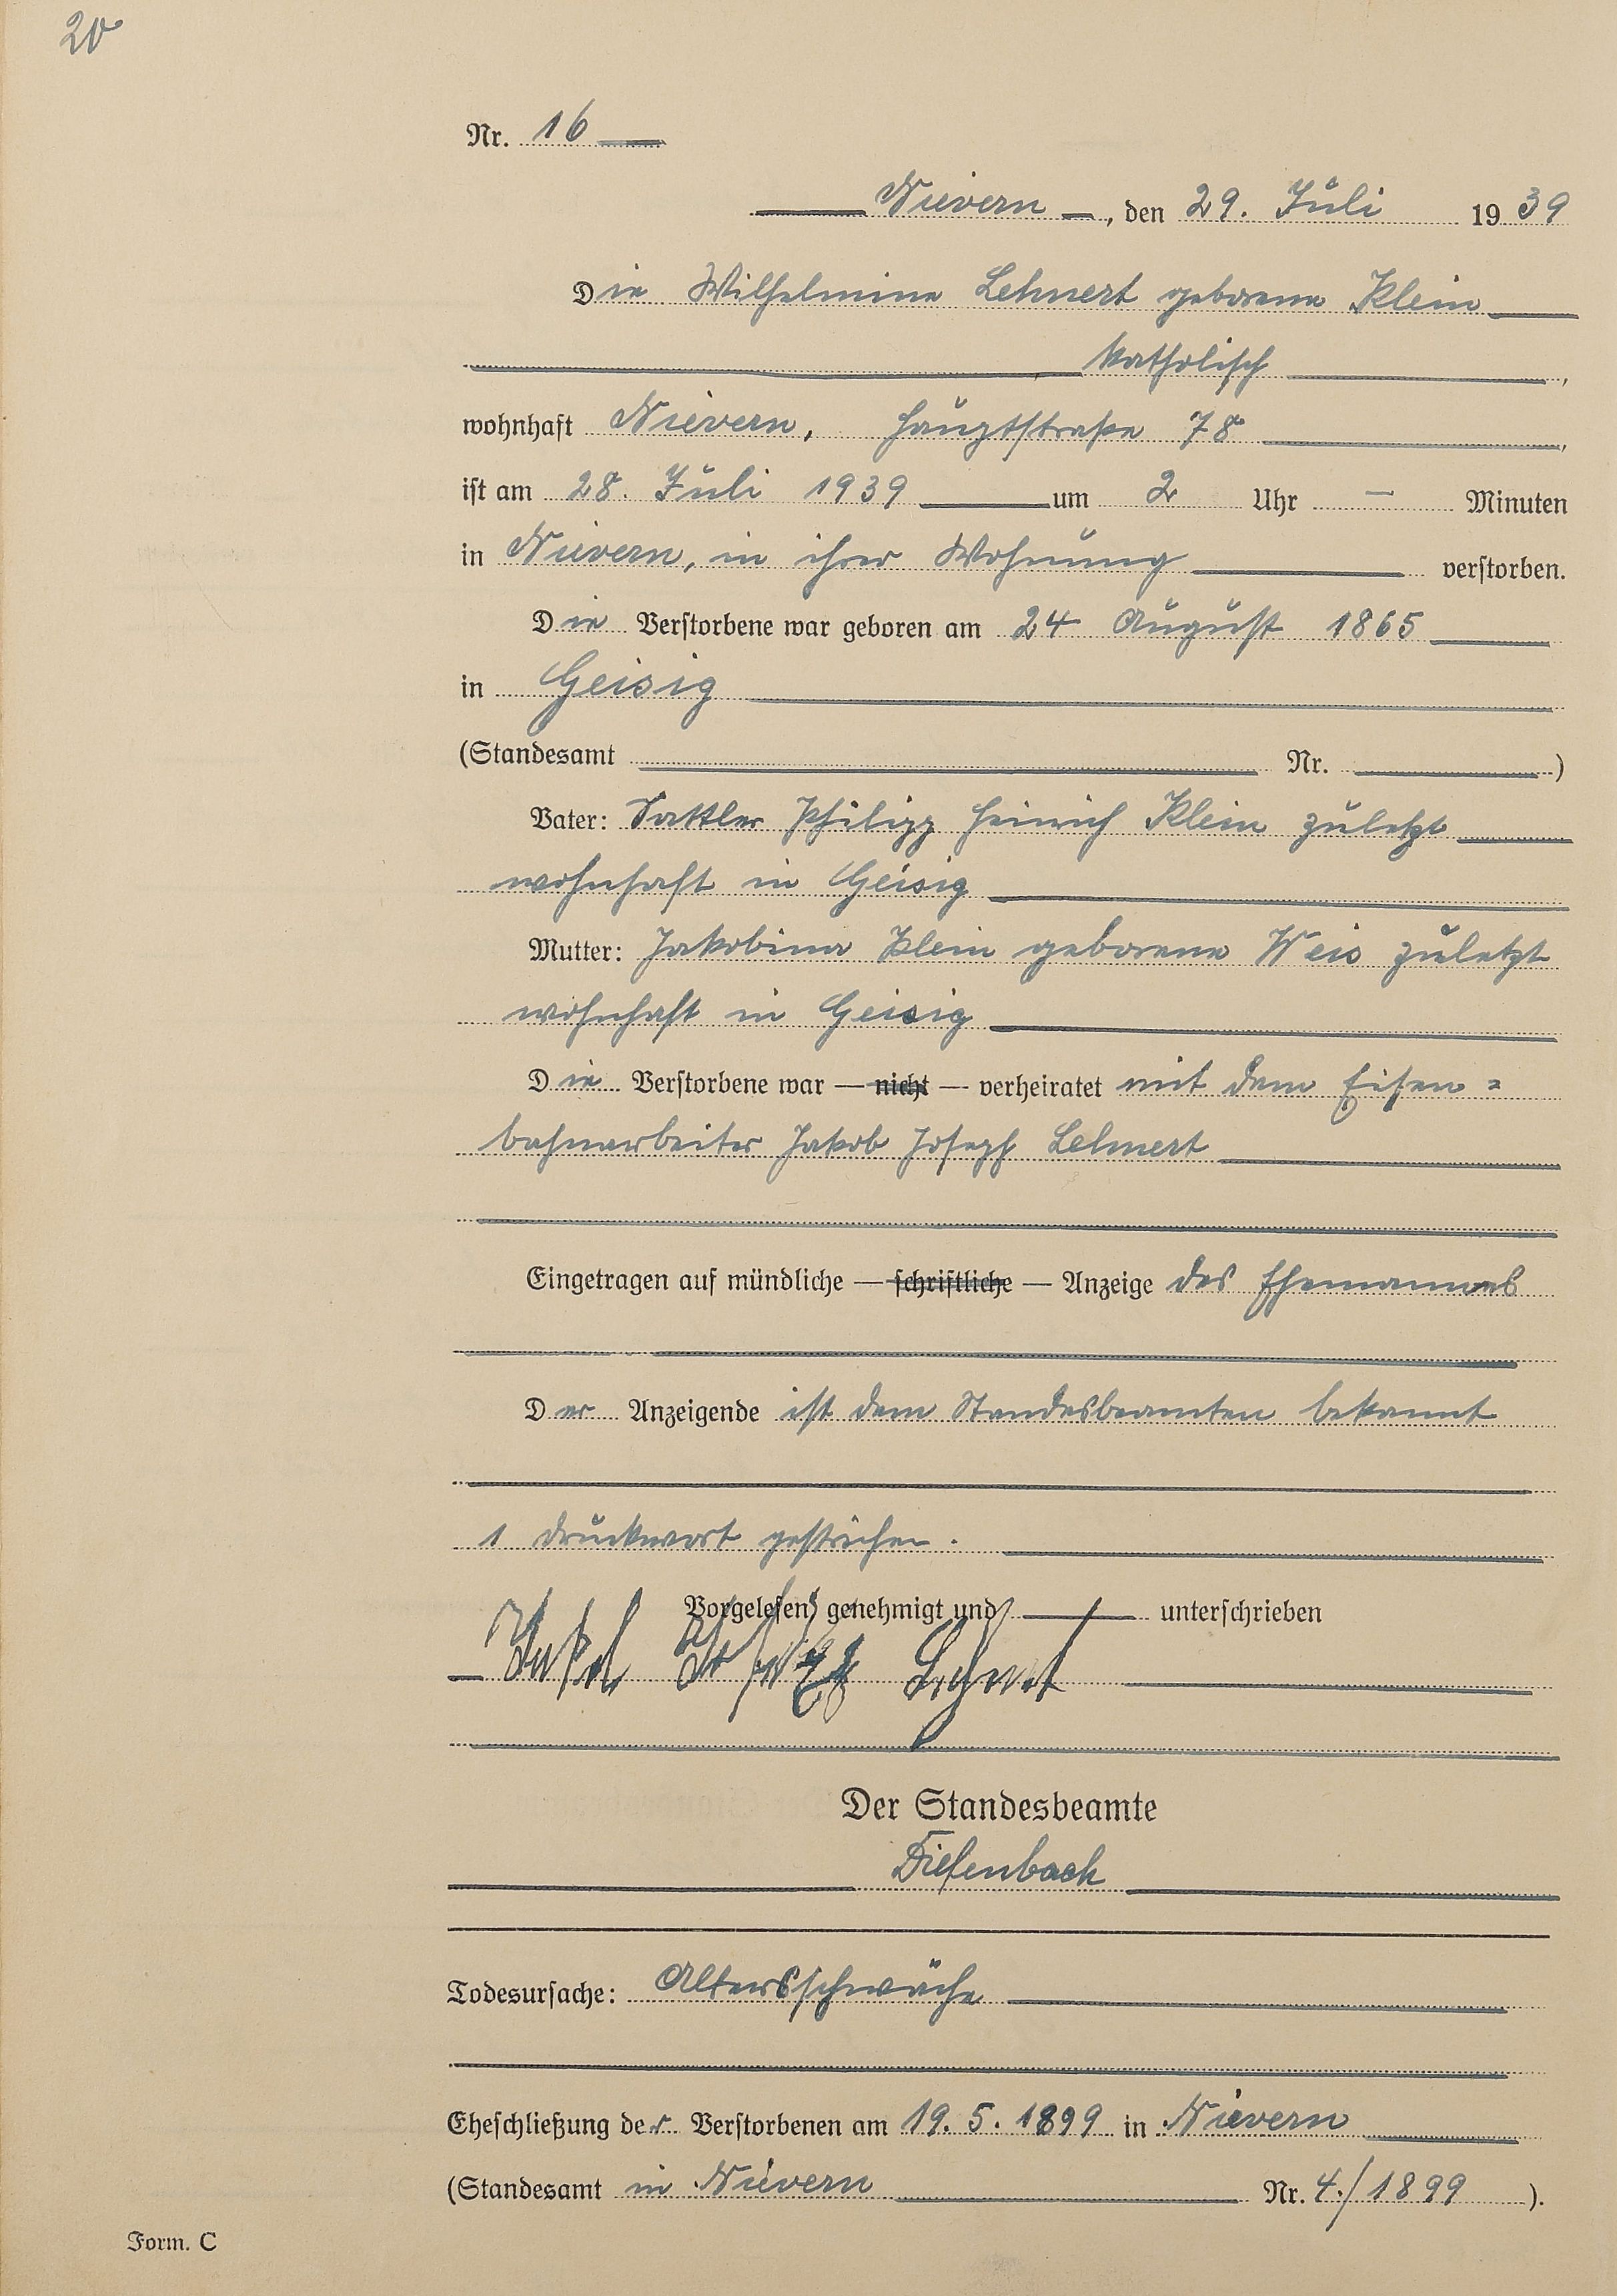 20
Nr. 16
Nievern, den 29. Juli 1939
Die Wilhelmine Lehnert geborene Klein
katholisch,
wohnhaft Nievern, Hauptstraße 78,
ist am 28. Juli 1939 um 2 Uhr — Minuten
in Nievern, in ihrer Wohnung verstorben.
Die Verstorbene war geboren am 24 August 1865
in Geisig
(Standesamt Nr. )
Vater: Sattler Philipp Heinrich Klein zuletzt
wohnhaft in Geisig
Mutter: Jakobina Klein geborene Weis zuletzt
wohnhaft in Geisig
Die Verstorbene war — nicht — verheiratet mit dem Eisen=
bahnarbeiter Jakob Joseph Lehnert
Eingetragen auf mündliche — schriftliche — Anzeige des Ehemannes
Der Anzeigende ist dem Standesbeamten bekannt
1 Druckwort gestrichen.
Vorgelesen, genehmigt und unterschrieben
Jakob Joseph Lehnert
Der Standesbeamte
Diefenbach
Todesursache: Altersschwäche
Eheschließung der Verstorbenen am 19. 5. 1899 in Nievern
(Standesamt in Nievern Nr. 4./1899 ).
Form. C